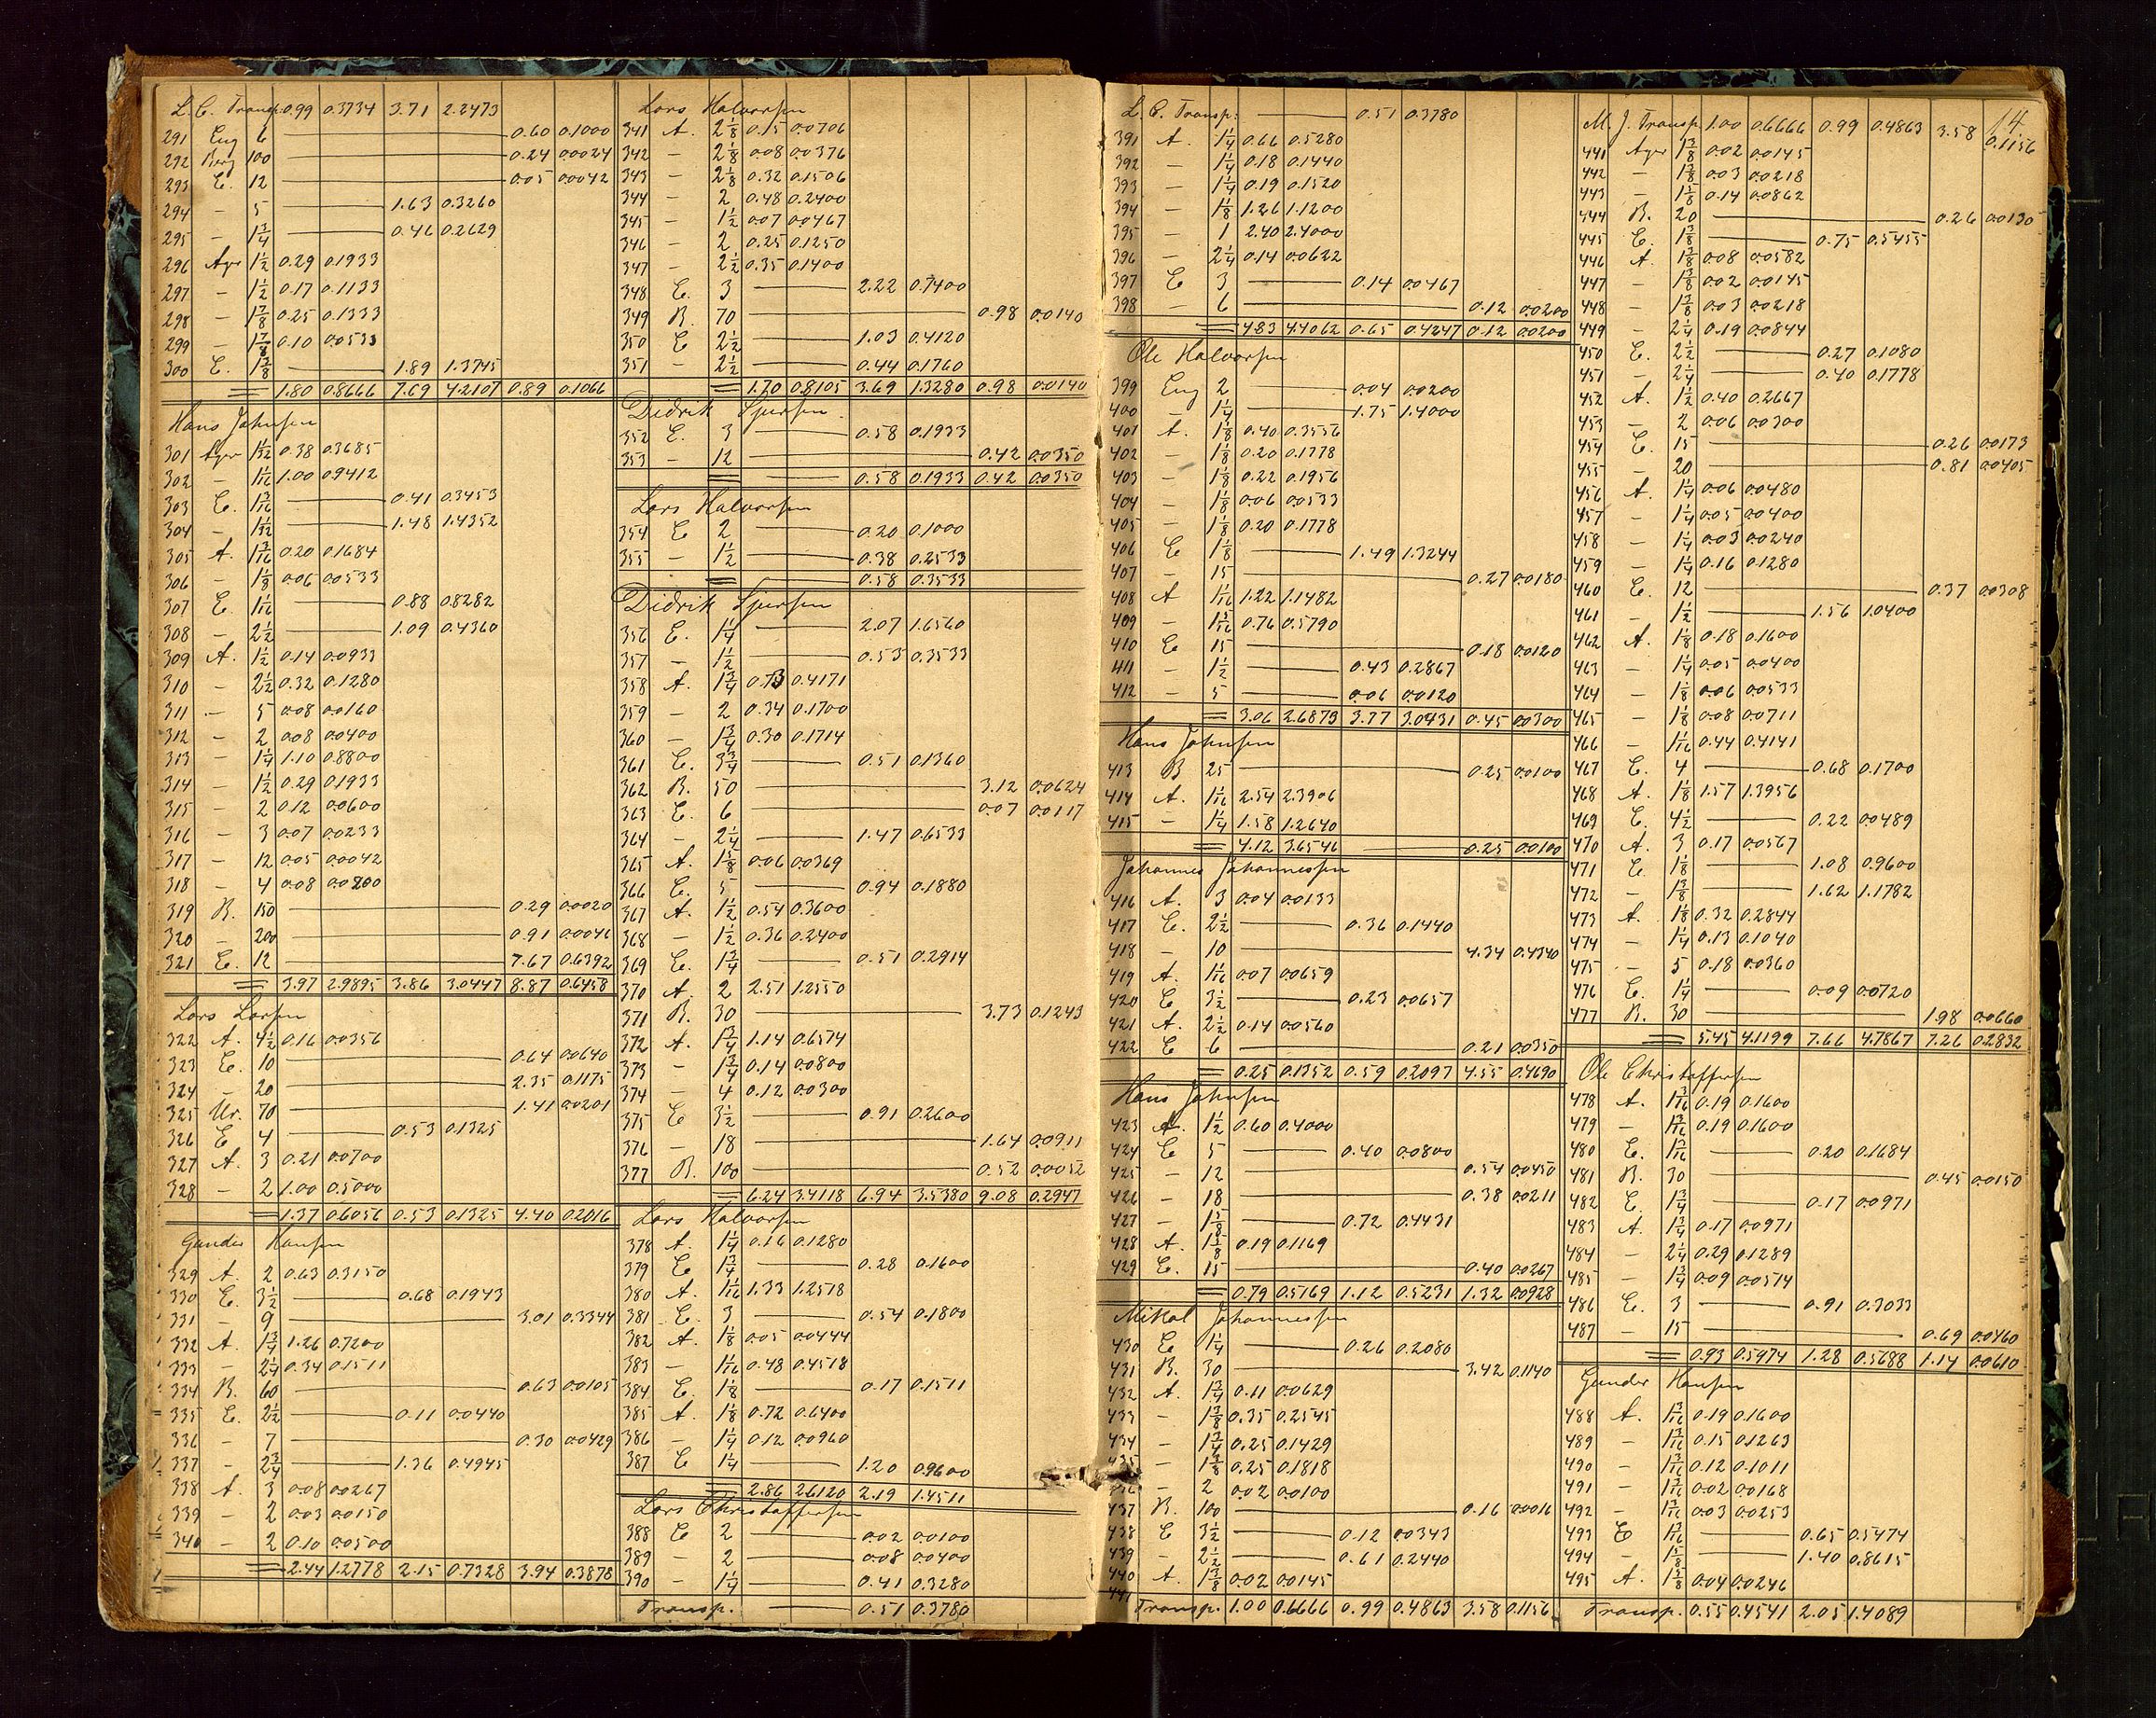 L. C. Transp. 0.99 0.3734 3.71 2.2473
291 Eng 6 0.60 0.1000
292 Berg 100 0.24 0.0024
293 E. 12 0.05 0.0042
294 - 5 1.63 0.3260
295 - 1 3/4 0.46 0.2629
296 Ager 1 1/2 0.29 0.1933
297 - 1 1/2 0.17 0.1133
298 - 1 7/8 0.25 0.1333
299 - 1 7/8 0.10 0.0533
300 E. 1 3/8 1.89 1.3745
1.80 0.8666 7.69 4.2107 0.89 0.1066
Hans Johnsen
301 Ager 1 1/32 0.38 0.3685
302 - 1 1/16 1.00 0.9412
303 E. 1 3/16 0.41 0.3453
304 - 1 1/32 1.48 1.4352
305 A. 1 3/16 0.20 0.1684
306 - 1 1/8 0.06 0.0533
307 E. 1 1/16 0.88 0.8282
308 - 2 1/2 1.09 0.4360
309 A. 1 1/2 0.14 0.0933
310 - 2 1/2 0.32 0.1280
311 - 5 0.08 0.0160
312 - 2 0.08 0.0400
313 - 1 1/4 1.10 0.8800
314 - 1 1/2 0.29 0.1933
315 - 2 0.12 0.0600
316 - 3 0.07 0.0233
317 - 12 0.05 0.0042
318 - 4 0.08 0.0200
319 B. 150 0.29 0.0020
320 - 200 0.91 0.0046
321 E. 12 7.67 0.6392
3.97 2.9895 3.86 3.0447 8.87 0.6458
Lars Larsen
322 A. 4 1/2 0.16 0.0356
323 E. 10 0.64 0.0640
324 - 20 2.35 0.1175
325 Ur. 70 1.41 0.0201
326 E 4 0.53 0.1325
327 A. 3 0.21 0.0700
328 - 2 1.00 0.5000
1.37 0.6056 0.53 0.1325 4.40 0.2016
Gunder Hansen
329 A. 2 0.63 0.3150
330 E. 3 1/2 0.68 0.1943
331 - 9 3.01 0.3344
332 A. 1 3/4 1.26 0.7200
333 - 2 1/4 0.34 0.1511
334 B. 60 0.63 0.0105
335 E. 2 1/2 0.11 0.0440
336 - 7 0.30 0.0429
337 - 2 3/4 1.36 0.4945
338 A. 3 0.08 0.0267
339 - 2 0.03 0.0150
340 - 2 0.10 0.0500
2.44 1.2778 2.15 0.7328 3.94 0.3878
Lars Halvorsen
341 A. 2 1/8 0.15 0.0706
342 - 2 1/8 0.08 0.0376
343 - 2 1/8 0.32 0.1506
344 - 2 0.48 0.2400
345 - 1 1/2 0.07 0.0467
346 - 2 0.25 0.1250
347 - 2 1/2 0.35 0.1400
348 E. 3 2.22 0.7400
349 B. 70 0.98 0.0140
350 E 2 1/2 1.03 0.4120
351 - 2 1/2 0.44 0.1760
1.70 0.8105 3.69 1.3280 0.98 0.0140
Didrik Sjursen
352 E. 3 0.58 0.1933
353 - 12 0.42 0.0350
0.58 0.1933 0.42 0.0350
Lars Halvorsen
354 E 2 0.20 0.1000
355 - 1 1/2 0.38 0.2533
0.58 0.3533
Didrik Sjursen
356 E. 1 1/4 2.07 1.6560
357 - 1 1/2 0.53 0.3533
358 A. 1 3/4 0.73 0.4171
359 - 2 0.34 0.1700
360 - 1 3/4 0.30 0.1714
361 E. 3 3/4 0.51 0.1360
362 B. 50 3.12 0.0624
363 E. 6 0.07 0.0117
364 - 2 1/4 1.47 0.6533
365 A. 1 5/8 0.06 0.0369
366 E. 5 0.94 0.1880
367 A. 1 1/2 0.54 0.3600
368 - 1 1/2 0.36 0.2400
369 E. 1 3/4 0.51 0.2914
370 A. 2 2.51 1.2550
371 B. 30 3.73 0.1243
372 A. 1 3/4 1.14 0.6514
373 - 1 3/4 0.14 0.0800
374 - 4 0.12 0.0300
375 E 3 1/2 0.91 0.2600
376 - 18 1.64 0.0911
377 B. 100 0.52 0.0052
6.24 3.4118 6.94 3.5380 9.08 0.2947
Lars Halvorsen
378 A. 1 1/4 0.16 0.1280
379 E 1 3/4 0.28 0.1600
380 A. 1 1/16 1.33 1.2518
381 E. 3 0.54 0.1800
382 A. 1 1/8 0.05 0.0444
383 - 1 1/16 0.48 0.4518
384 E. 1 1/8 0.17 0.1511
385 A. 1 1/8 0.72 0.6400
386 - 1 1/4 0.12 0.0960
387 E 1 1/4 1.20 0.9600
2.86 2.6120 2.19 1.4511
Lars Christoffersen
388 E 2 0.02 0.0100
389 - 2 0.08 0.0400
390 - 1 1/4 0.41 0.3280
Transp. 0.51 0.3780
14
L. C. Transp. 0.51 0.3780
391 A. 1 1/4 0.66 0.5280
392 - 1 1/4 0.18 0.1440
393 - 1 1/4 0.19 0.1520
394 - 1 1/8 1.26 1.1200
395 - 1 2.40 2.4000
396 - 2 1/4 0.14 0.0622
397 E 3 0.14 0.0467
398 - 6 0.12 0.0200
4.83 4.4062 0.65 0.4247 0.12 0.0200
Ole Halvorsen
399 Eng 2 0.04 0.0200
400 - 1 1/4 1.75 1.4000
401 A. 1 1/8 0.40 0.3556
402 - 1 1/8 0.20 0.1778
403 - 1 1/8 0.22 0.1956
404 - 1 1/8 0.06 0.0533
405 - 1 1/8 0.20 0.1778
406 E 1 1/8 1.49 1.3244
407 - 15 0.27 0.0180
408 A 1 1/16 1.22 1.1482
409 - 1 5/16 0.76 0.5790
410 E 15 0.18 0.0120
411 - 1 1/2 0.43 0.2867
412 - 5 0.06 0.0120
3.06 2.6873 3.77 3.0431 0.45 0.0300
Hans Johnsen
413 B 25 0.25 0.0100
414 A. 1 1/16 2.54 2.3906
415 - 1 1/4 1.58 1.2640
4.12 3.6546 0.25 0.0100
Johannes Johannessen
416 A. 3 0.04 0.0133
417 E. 2 1/2 0.36 0.1440
418 - 10 4.34 0.4340
419 A. 1 1/16 0.07 0.0659
420 E 3 1/2 0.23 0.0657
421 A. 2 1/2 0.14 0.0560
422 E 6 0.21 0.0350
0.25 0.1352 0.59 0.2097 4.55 0.4690
Hans Johnsen
423 A. 1 1/2 0.60 0.4000
424 E 5 0.40 0.0800
425 - 12 0.54 0.0450
426 - 18 0.38 0.0211
427 - 1 5/8 0.72 0.4431
428 A. 1 5/8 0.19 0.1169
429 E. 15 0.40 0.0267
0.79 0.5169 1.12 0.5231 1.32 0.0928
Mikal Johannessen
430 E 1 1/4 0.26 0.2080
431 B. 30 3.42 0.1140
432 A. 1 3/4 0.11 0.0629
433 - 1 3/8 0.35 0.2545
434 - 1 3/4 0.25 0.1429
435 - 1 3/8 0.25 0.1818
- 2 0.02 0.0100
437 B. 100 0.16 0.0016
438 E 3 1/2 0.12 0.0343
439 - 2 1/2 0.61 0.2440
440 A. 1 3/8 0.02 0.0145
441
Transp. 1.00 0.6666 0.99 0.4863 3.58 0.1156
M. J. Transp. 1.00 0.6666 0.99 0.4863 3.58 0.1156
441 Ager 1 3/8 0.02 0.0145
442 - 1 3/8 0.03 0.0218
443 - 1 5/8 0.14 0.0862
444 B. 20 0.26 0.0130
445 E. 1 3/8 0.75 0.5455
446 A. 1 3/8 0.08 0.0582
447 - 1 3/8 0.02 0.0145
448 - 1 3/8 0.03 0.0218
449 - 2 1/4 0.19 0.0844
450 E. 2 1/2 0.27 0.1080
451 - 2 1/4 0.40 0.1778
452 A. 1 1/2 0.40 0.2667
453 - 2 0.06 0.0300
454 E. 15 0.26 0.0173
455 - 20 0.81 0.0405
456 A. 1 1/4 0.06 0.0480
457 - 1 1/4 0.05 0.0400
458 - 1 1/4 0.03 0.0240
459 - 1 1/4 0.16 0.1280
460 E. 12 0.37 0.0308
461 - 1 1/2 1.56 1.0400
462 A. 1 1/8 0.18 0.1600
463 - 1 1/4 0.05 0.0400
464 - 1 1/8 0.06 0.0533
465 - 1 1/8 0.08 0.0711
466 - 1 1/16 0.44 0.4141
467 E. 4 0.68 0.1700
468 A. 1 1/8 1.57 1.3956
469 E. 4 1/2 0.22 0.0489
470 A. 3 0.17 0.0567
471 E. 1 1/8 1.08 0.9600
472 - 1 3/8 1.62 1.1782
473 A. 1 1/8 0.32 0.2844
474 - 1 1/4 0.13 0.1040
475 - 5 0.18 0.0360
476 E. 1 1/4 0.09 0.0720
477 B. 30 1.98 0.0660
5.45 4.1199 7.66 4.7867 7.26 0.2832
Ole Christoffersen
478 A. 1 3/16 0.19 0.1600
479 - 1 3/16 0.19 0.1600
480 E. 1 3/16 0.20 0.1684
481 B. 30 0.45 0.0150
482 E. 1 3/4 0.17 0.0971
483 A. 1 3/4 0.17 0.0971
484 - 2 1/4 0.29 0.1289
485 - 1 3/4 0.09 0.0514
486 E. 3 0.91 0.3033
487 - 15 0.69 0.0460
0.93 0.5974 1.28 0.5688 1.14 0.0610
Gunder Hansen
488 A. 1 3/16 0.19 0.1600
489 - 1 3/16 0.15 0.1263
490 - 1 3/16 0.12 0.1011
491 - 1 3/16 0.02 0.0168
492 - 1 3/16 0.03 0.0253
493 E 1 3/16 0.65 0.5474
494 - 1 5/8 1.40 0.8615
495 A. 1 5/8 0.04 0.0246
Transp. 0.55 0.4541 2.05 1.4089